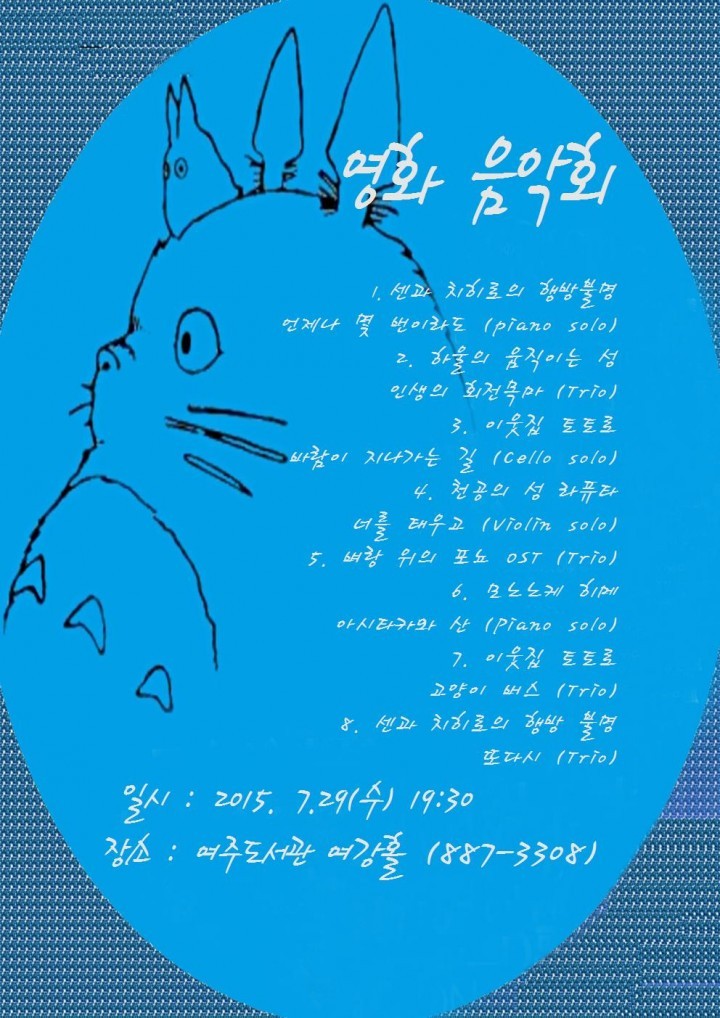 영화 음악회
1. 센과 치히로의 행방불명
언제나 몇 번이라도 (piano solo)
2. 하울의 움직이는 성
인생의 회전목마 (Trio)
3. 이웃집 토토로
바람이 지나가는 길 (Cello solo)
4. 천공의 성 라퓨타
너를 태우고 (Violin solo)
5. 벼랑 위의 포뇨 OST (Trio)
6. 모노노케 히메
아시타카와 산 (Piano solo)
7. 이웃집 토토로
고양이 버스 (Trio)
8. 센과 치히로의 행방 불명
또다시 (Trio)
일시 : 2015. 7.29(수) 19:30
장소 : 여주도서관 여강홀 (887-3308)